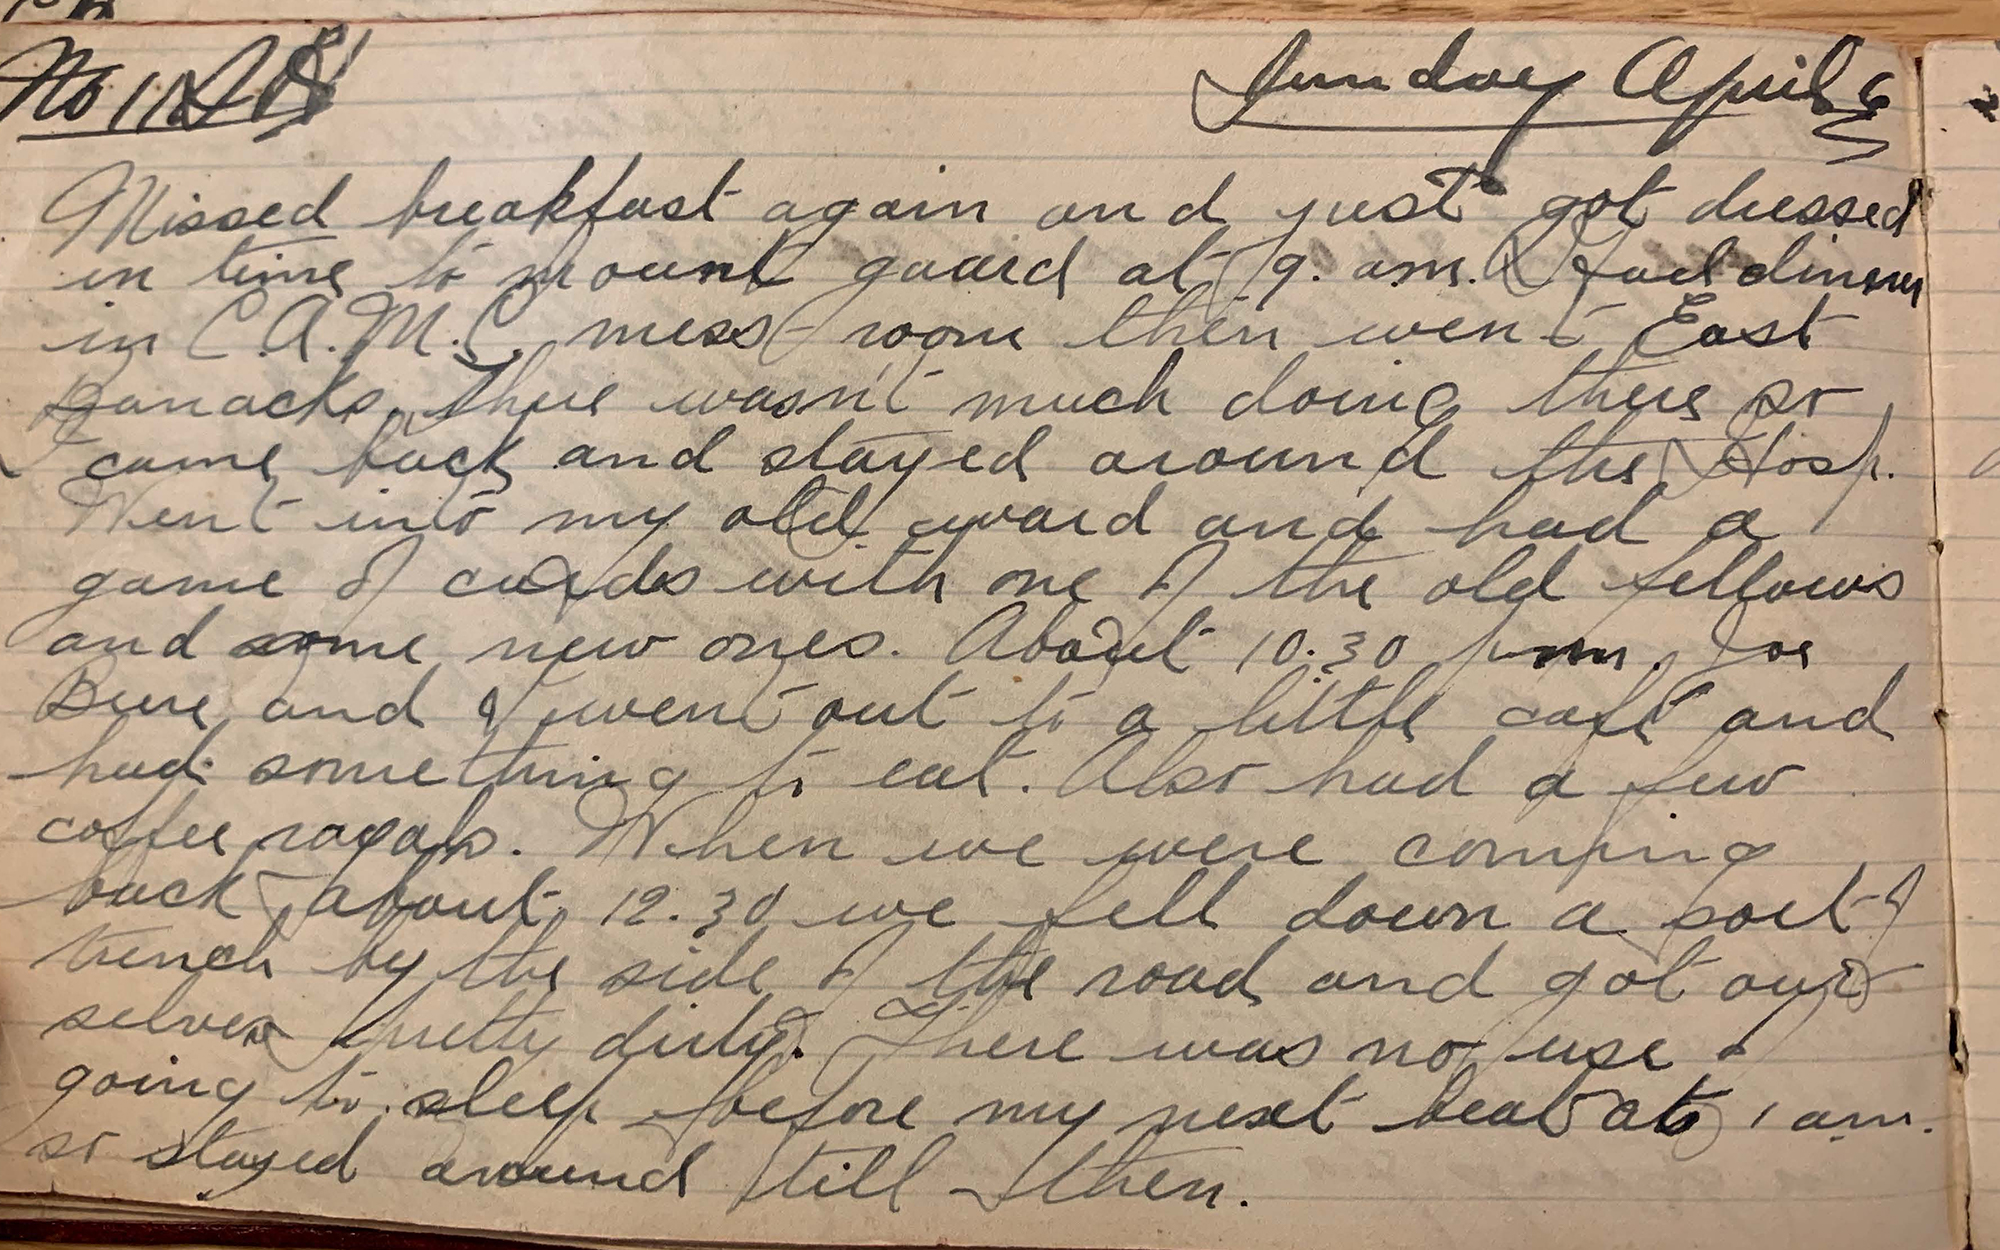 Sunday April 6
Missed breakfast again and just got dressed
in time to mount guard at 9. am. Had dinner
in C.A.M.C. mess room then went East
Barracks. There wasn't much doing there so
I came back and stayed around the Hosp.
Went into my old ward and had a
game of cards with one of the old fellows
and some new ones. About 10.30 pm. Joe
and I went out to a little café and
had something to eat. Also had a few
coffee royals. When we were coming
back about 12.30 we fell down a sort of
trench by the side of the road and got our
selves pretty dirty. There was no use
going to sleep before my next beat at 1 am.
so stayed around till then.